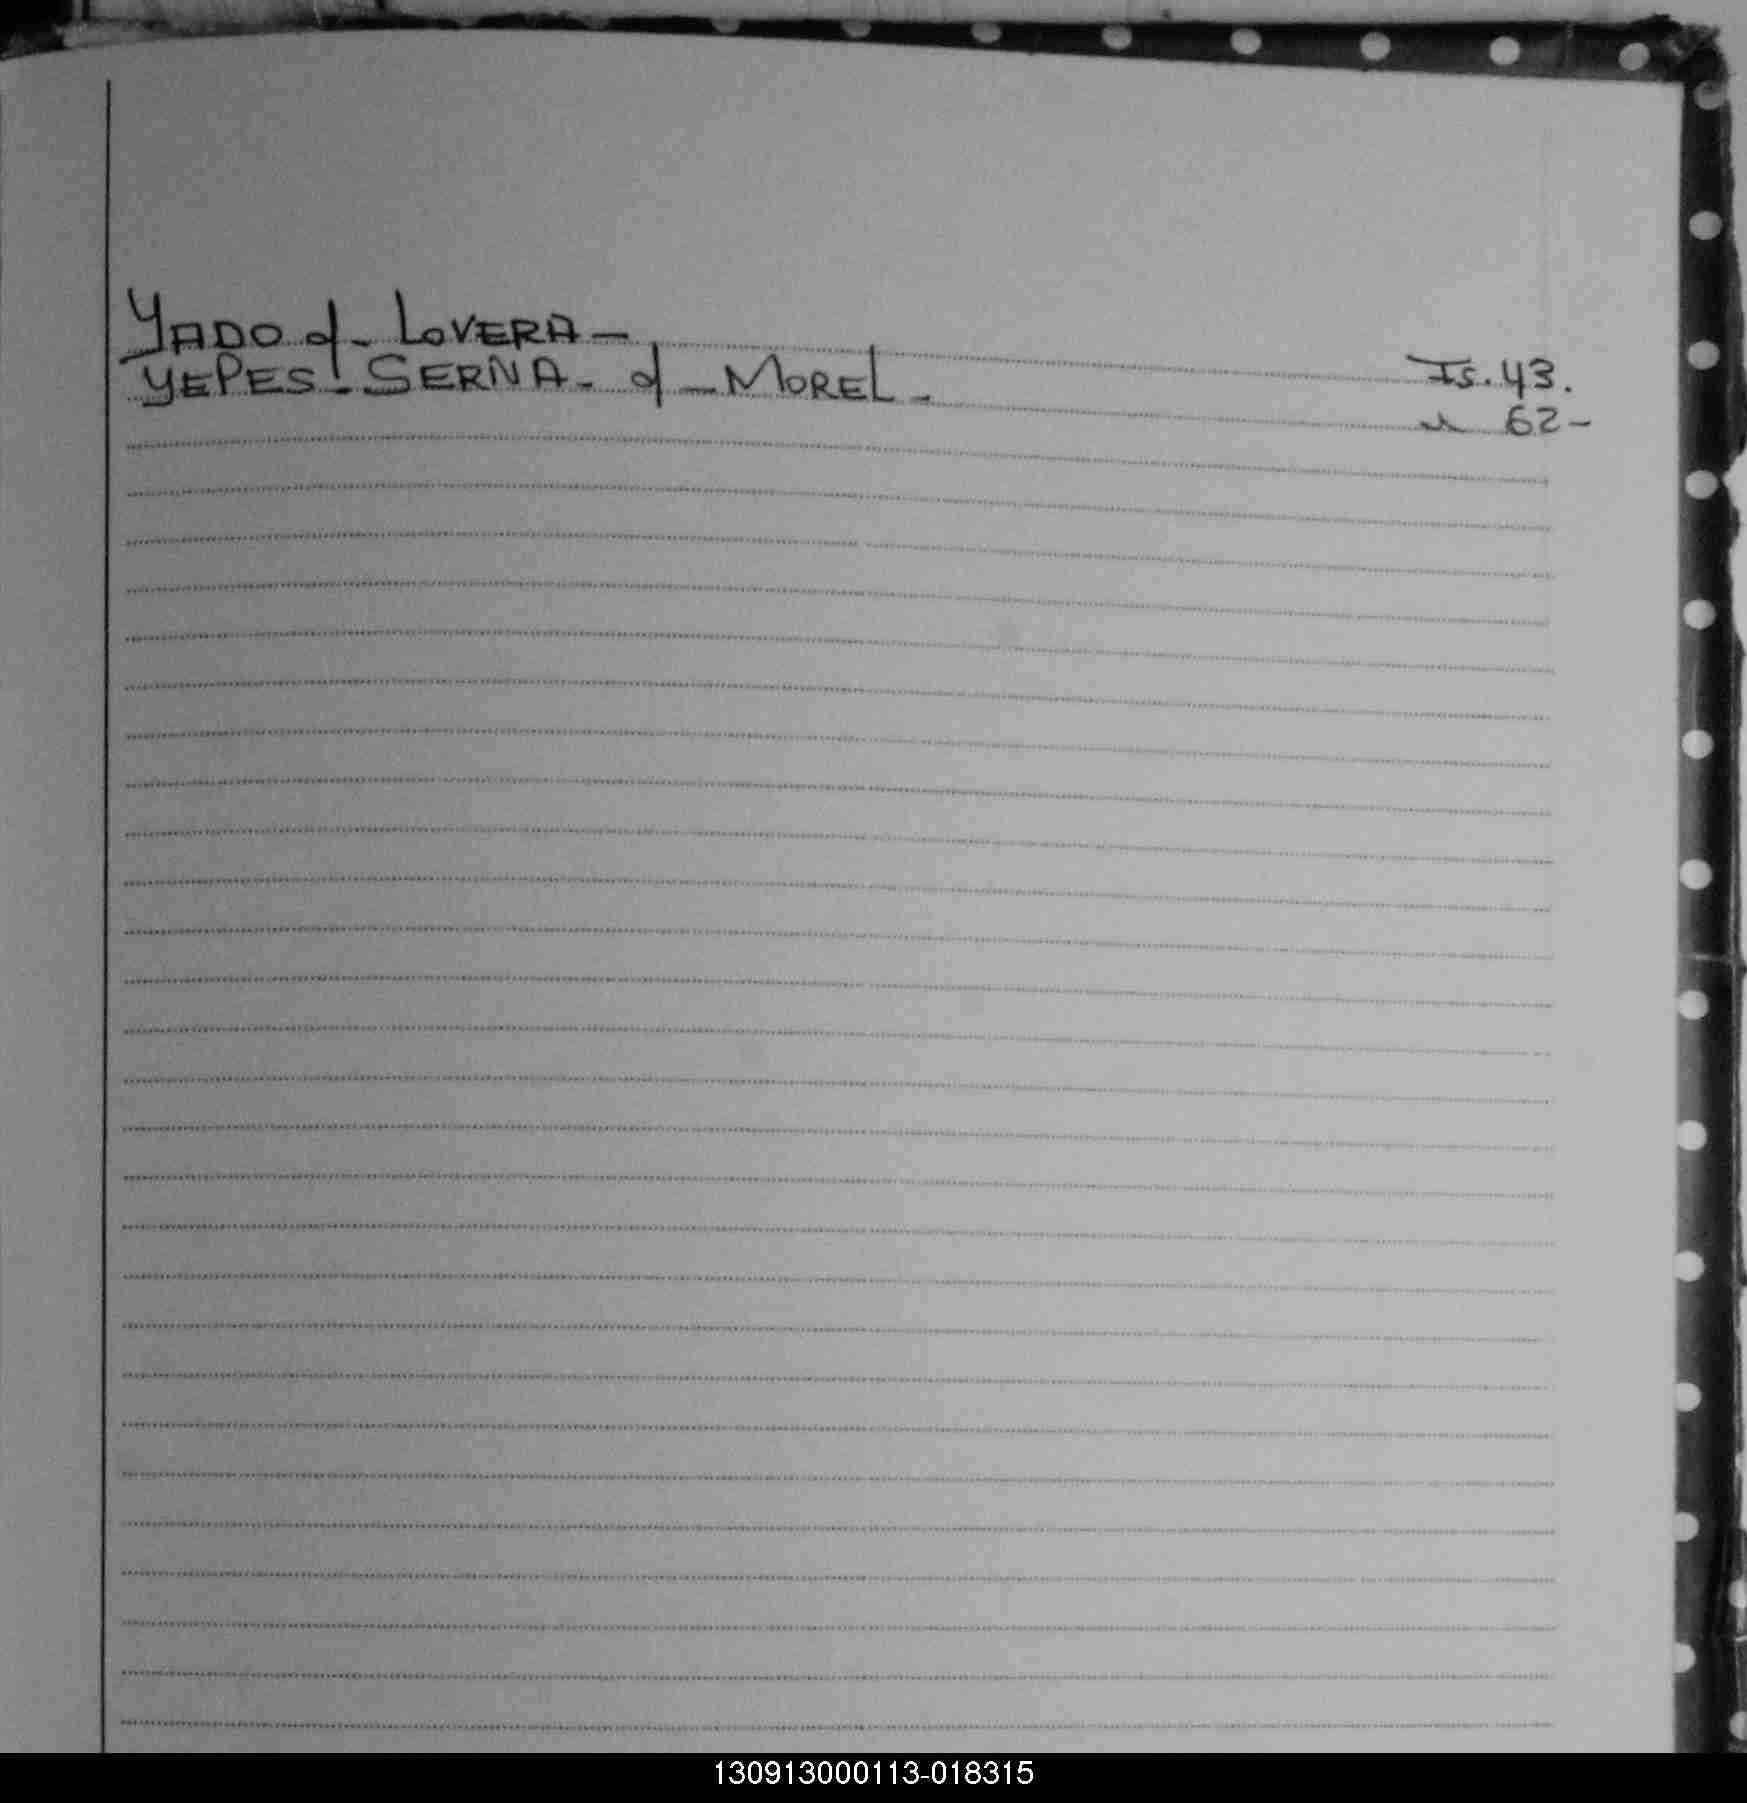 YADO d- LOVERA-
YEPES-SERNA- d-MOREL- Fs.43.
" 62-
130913000113-018315